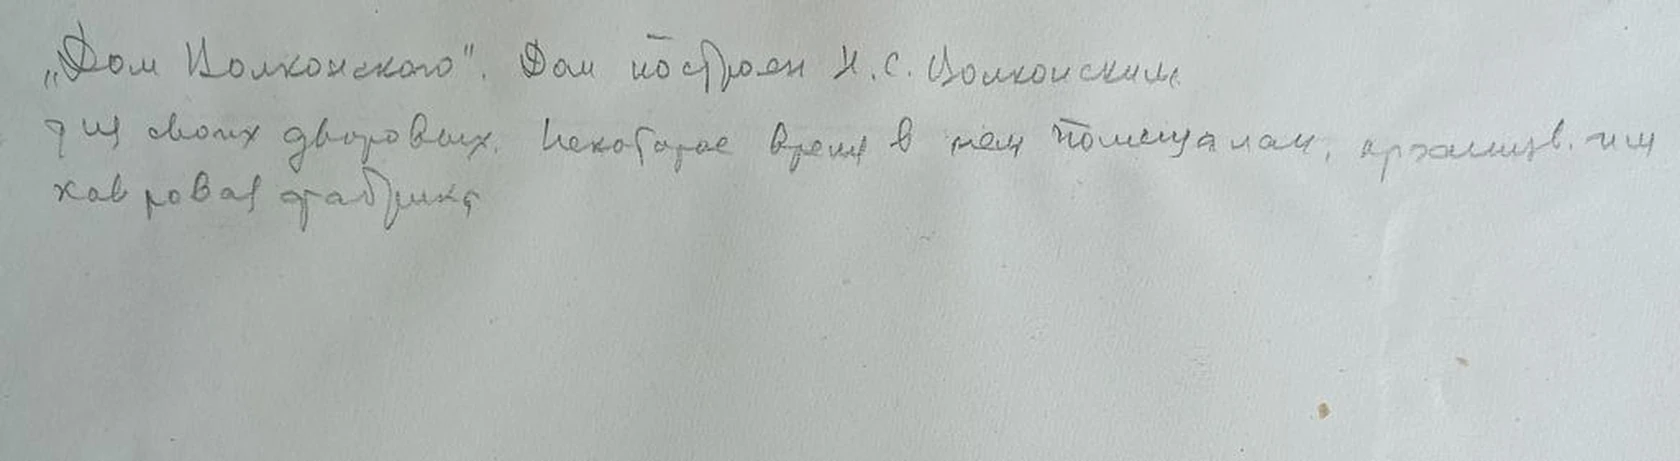 „Дом Волконского". Дом построен Н. С. Волконским
для своих дворовых. Некоторое время в нем помещалась, организов. им
ковровая фабрика